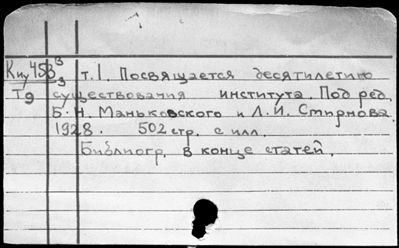 Кму453 3/3 т.1. Посвящается десятилетию
Т9 существования института. Под ред.
Б.Н. Маньковского и Л.И. Смирнова.
1928. 502 стр. с илл.
Библиогр. в конце статей.